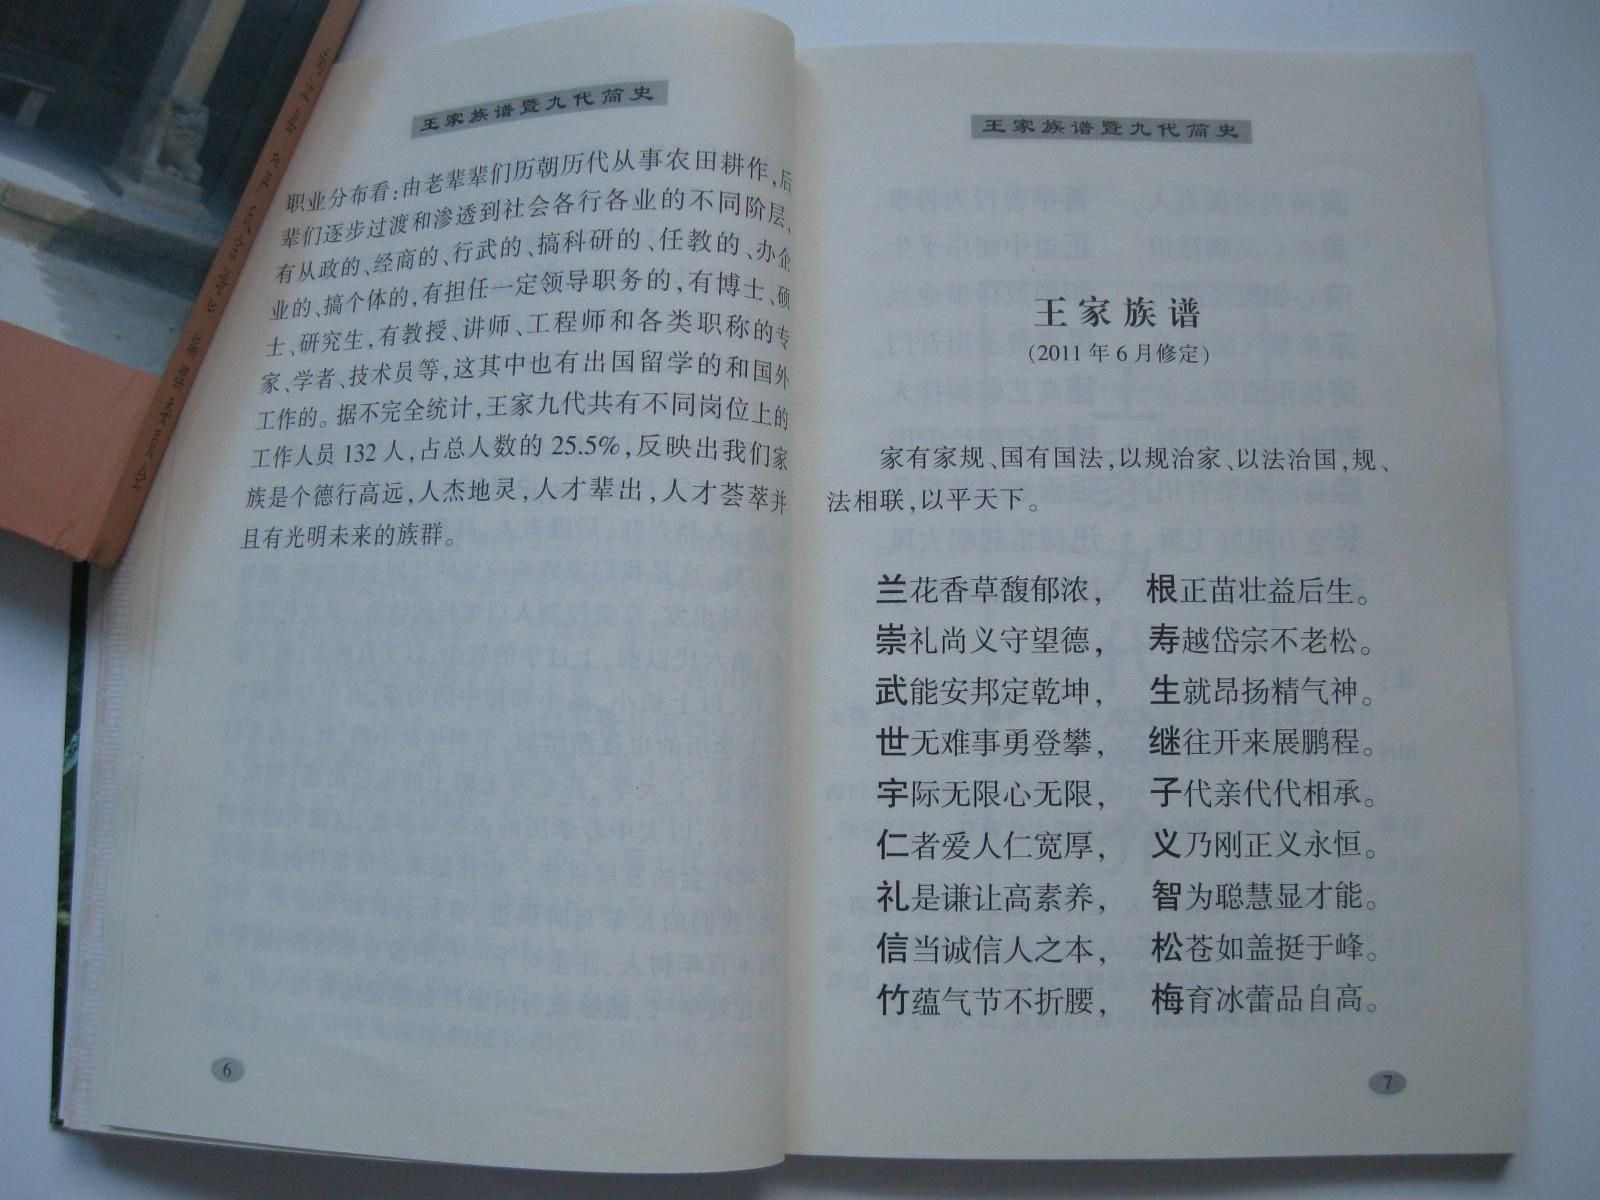 王家族谱暨九代简史
职业分布看：由老辈辈们历朝历代从事农田耕作，后
辈们逐步过渡和渗透到社会各行各业的不同阶层，
有从政的、经商的、行武的、搞科研的、任教的、办企
业的、搞个体的，有担任一定领导职务的，有博士、硕
士、研究生，有教授、讲师、工程师和各类职称的专
家、学者、技术员等，这其中也有出国留学的和国外
工作的。据不完全统计，王家九代共有不同岗位上的
工作人员 132 人，占总人数的 25.5%，反映出我们家
族是个德行高远，人杰地灵，人才辈出，人才荟萃并
且有光明未来的族群。
6
王家族谱暨九代简史
王家族谱
(2011 年 6 月修定)
家有家规、国有国法，以规治家、以法治国，规、
法相联，以平天下。
兰花香草馥郁浓， 根正苗壮益后生。
崇礼尚义守望德， 寿越岱宗不老松。
武能安邦定乾坤， 生就昂扬精气神。
世无难事勇登攀， 继往开来展鹏程。
宇际无限心无限， 子代亲代代相承。
仁者爱人仁宽厚， 义乃刚正义永恒。
礼是谦让高素养， 智为聪慧显才能。
信当诚信人之本， 松苍如盖挺于峰。
竹蕴气节不折腰， 梅育冰蕾品自高。
7